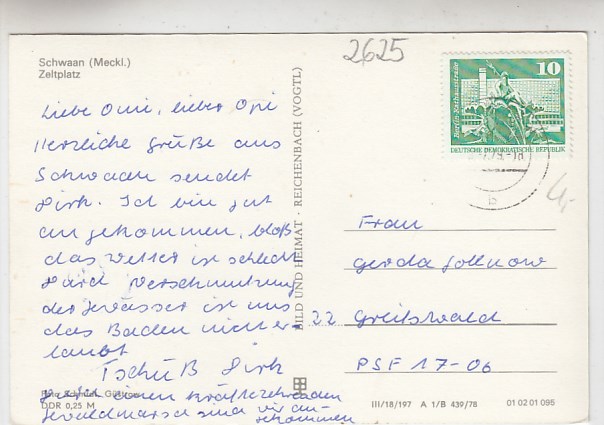 Schwaan (Meckl.)
Zeltplatz
2625
Liebe Omi, lieber Opi
Herzliche Grüße aus
Schwaan sendet
Dirk. Ich bin gut
angekommen, bloß
das Wetter ist schlecht
Durch Verschmutzung
der Gewässer ist uns
das Baden nicht er-
laubt
Tschüß Dirk
einen
sind wir an-
gekommen
Foto Schmidt, Güstrow
DDR 0,25 M
BILD UND HEIMAT · REICHENBACH (VOGTL)
Berlin-Rathausstraße
10
DEUTSCHE DEMOKRATISCHE REPUBLIK
b
Frau
Gerda Sollnow
22 Greifswald
PSF 17-06
III/18/197 A 1/B 439/78 01 02 01 095